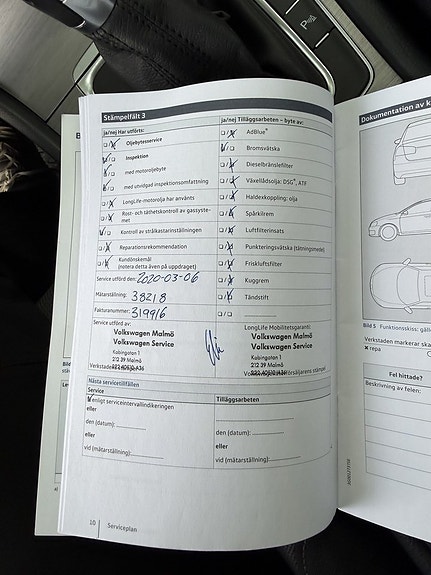 Stämpelfält 3
ja/nej Har utförts:
Oljebytesservice
Inspektion
med motoroljebyte
med utvidgad inspektionsomfattning
LongLife-motorolja har använts
Rost- och täthetskontroll av gassystemet
Kontroll av strålkastarinställningen
Reparationsrekommendation
Kundönskemål
(notera detta även på uppdraget)
Service utförd den: 2020-03-06
Mätarställning: 38218
Fakturanummer: 319916
Service utförd av:
Volkswagen Malmö
Volkswagen Service
Kabingatan 1
212 39 Malmö
Verkstadens
ja/nej Tilläggsarbeten – byte av:
AdBlue®
Bromsvätska
Dieselbränslefilter
Växellådsolja: DSG®, ATF
Haldexkoppling: olja
Spårkilrem
Luftfilterinsats
Punkteringsvätska (tätningsmedel)
Friskluftsfilter
Kuggrem
Tändstift
LongLife Mobilitetsgaranti:
Volkswagen Malmö
Volkswagen Service
Kabingatan 1
212 39 Malmö
stämpel
Nästa servicetillfällen
Service
Enligt serviceintervallindikeringen
eller
den (datum):
eller
vid (mätarställning):
Tilläggsarbeten
den (datum):
eller
vid (mätarställning):
10
Serviceplan
Dokumentation av k
Bild 5 Funktionsskiss: gälli
Verkstaden markerar ska
x repa
Fel hittade?
Beskrivning av felen: